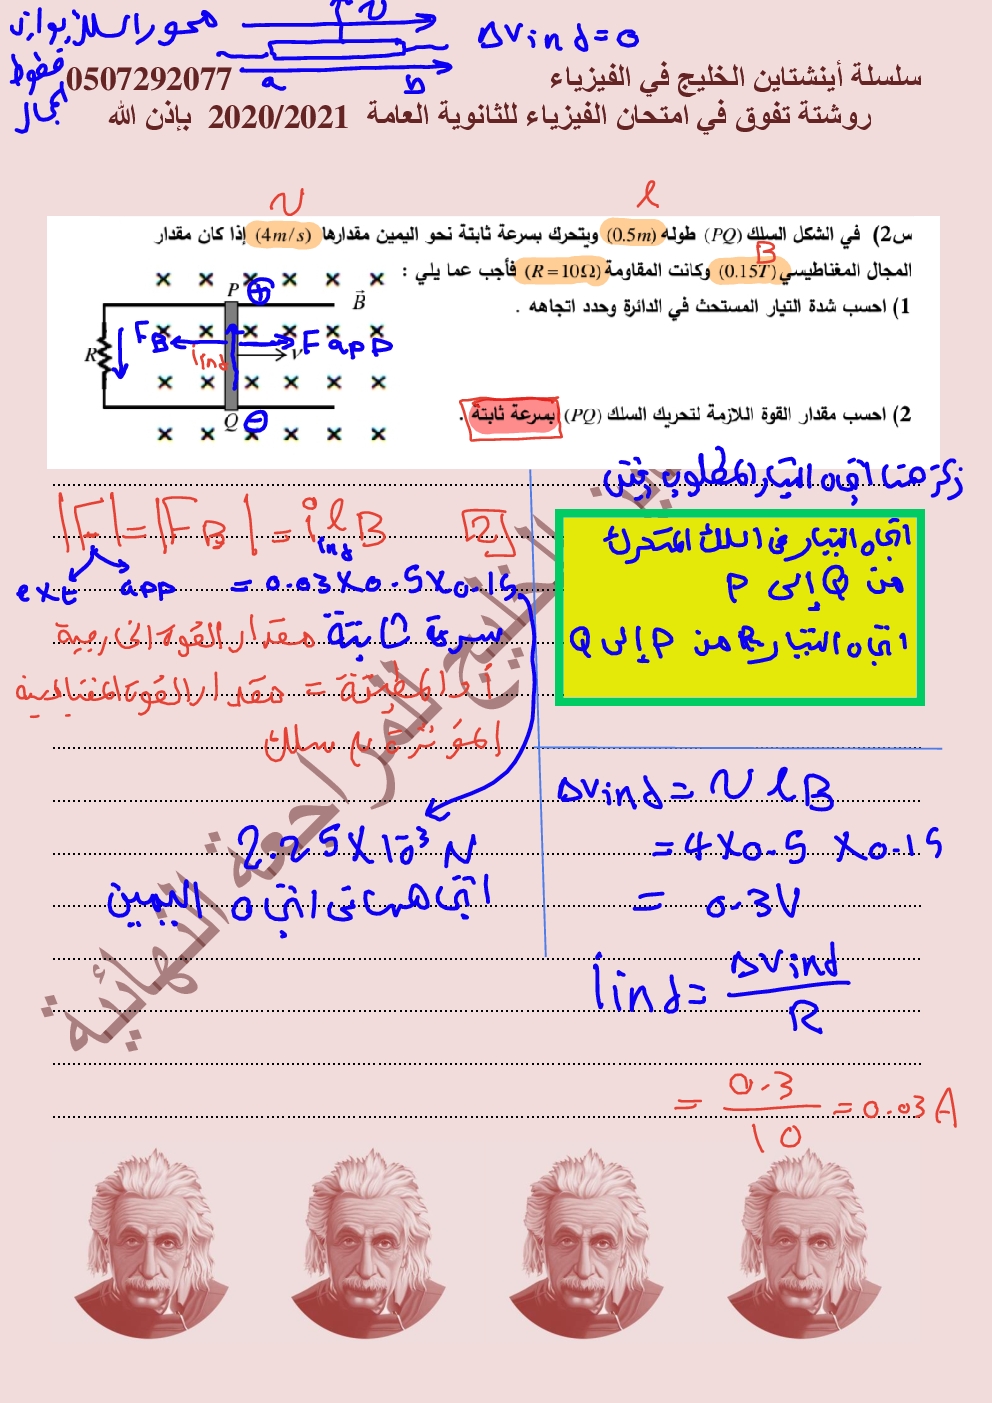 محور السلك يوازي
خطوط
المجال
v
a b
Δvind=0
سلسلة أينشتاين الخليج في الفيزياء 0507292077
روشتة تفوق في امتحان الفيزياء للثانوية العامة 2020/2021 بإذن الله
v
l
س2) في الشكل السلك (PQ) طوله (0.5m) ويتحرك بسرعة ثابتة نحو اليمين مقدارها (4m/s) إذا كان مقدار
B
المجال المغناطيسي (0.15T) وكانت المقاومة (R=10Ω) فأجب عما يلي :
1) احسب شدة التيار المستحث في الدائرة وحدد اتجاهه .
2) احسب مقدار القوة اللازمة لتحريك السلك (PQ) بسرعة ثابتة .
P
B
R
FB
iind
F app
v
Q
اتجاه التيار المطلوب
اتجاه التيار في السلك المتحرك
من Q إلى P
اتجاه التيار R من P إلى Q
|F|=|FB|=iind l B [2]
ext app = 0.03X0.5X0.15
سرعة ثابتة مقدار القوة الخارجية
أو المطبقة = مقدار القوة المغناطيسية
المؤثرة سلك
2.25X10⁻³ N
اتجاه اليمين
Δvind= v l B
=4X0.5 X0.15
= 0.3V
iind= Δvind/R
= 0.3/10 =0.03A
للمراجعة النهائية